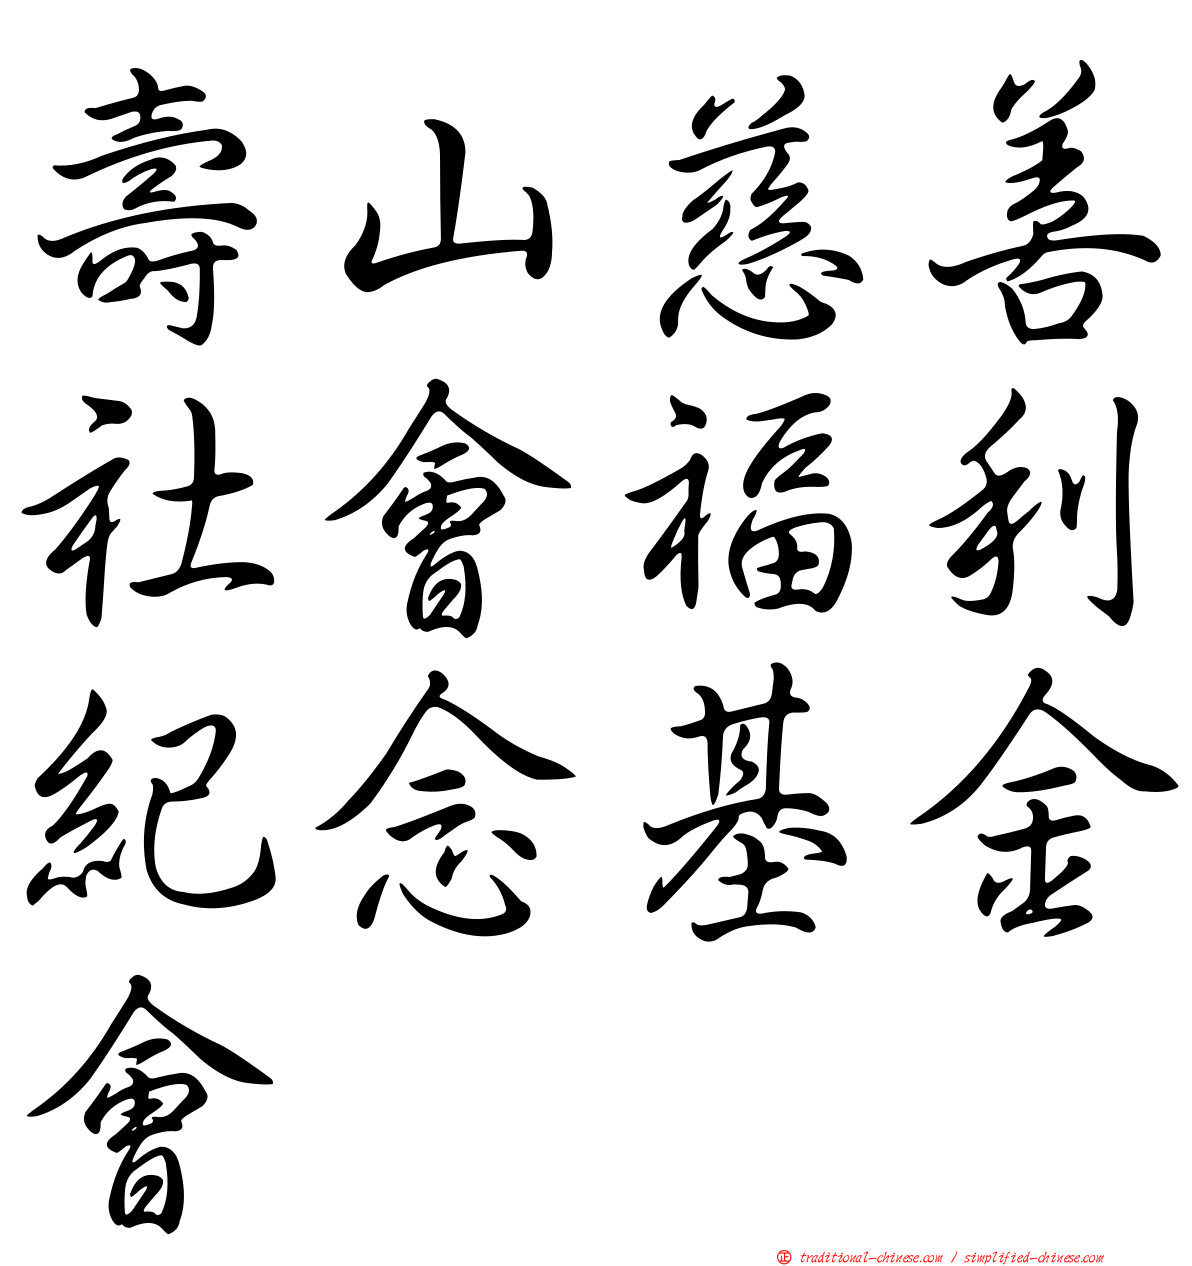 壽山慈善
社會福利
紀念基金
會
㊣ traditional-chinese.com / simplified-chinese.com